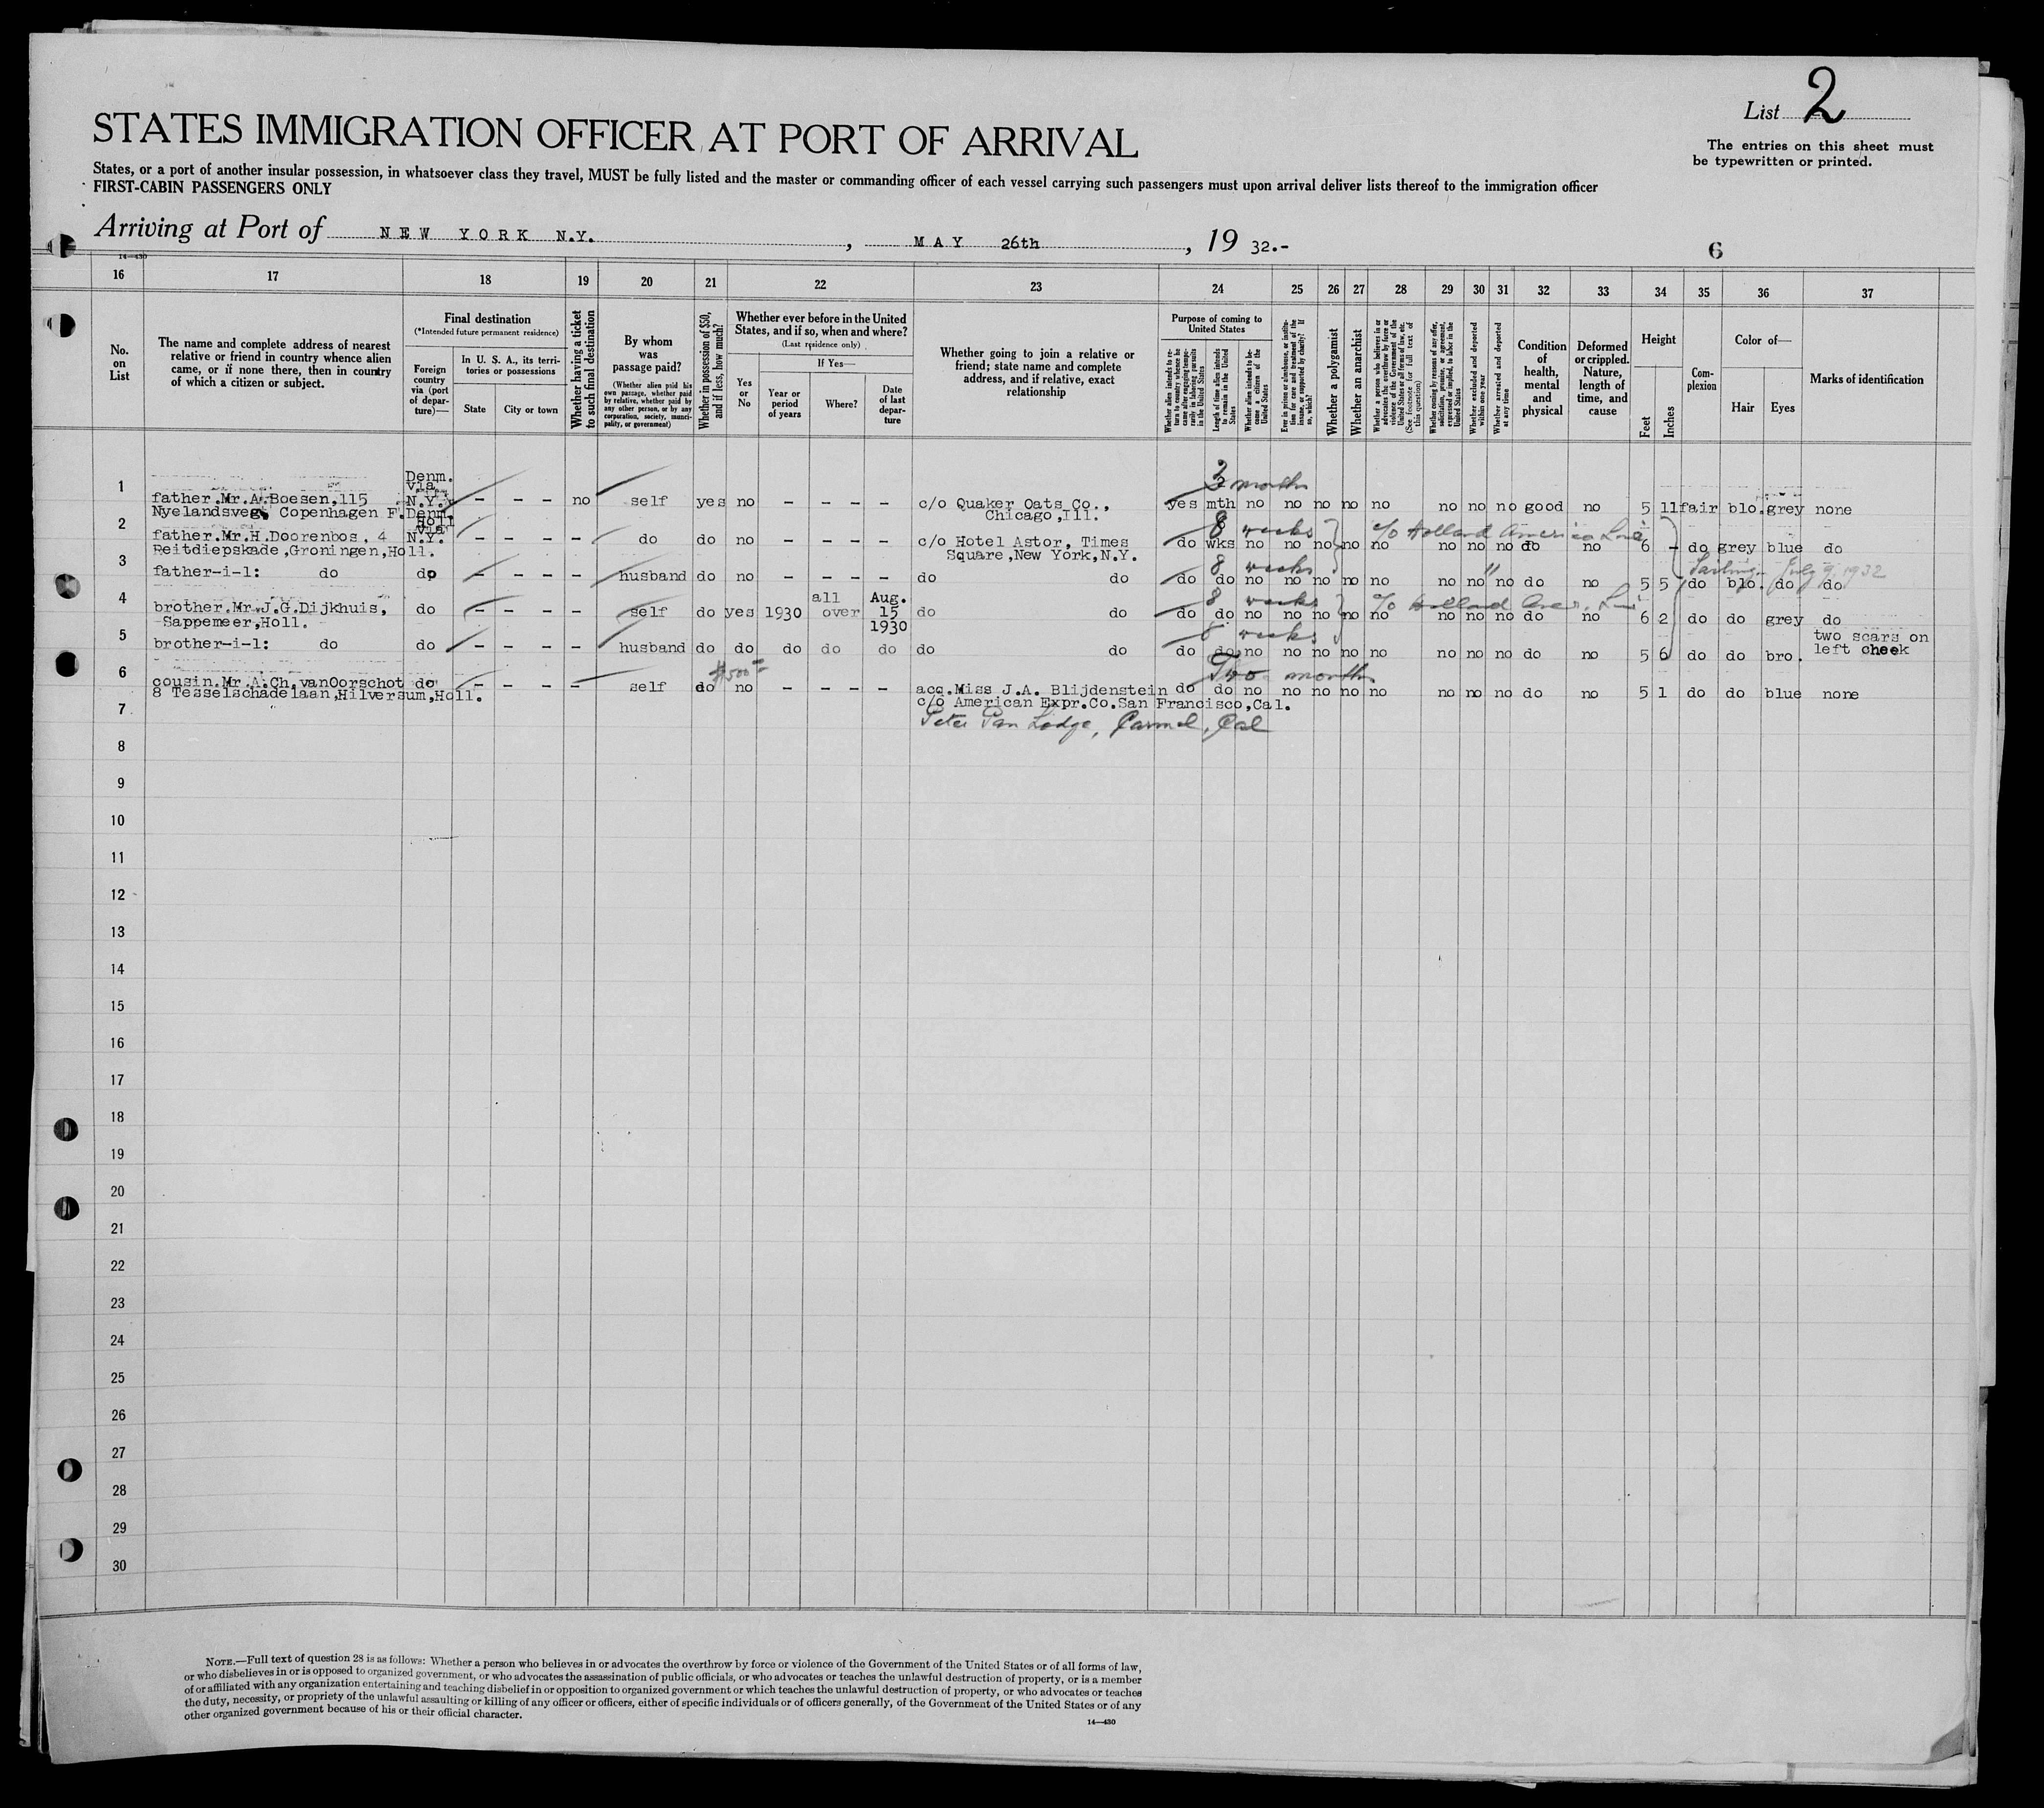 List 2
The entries on this sheet must
be typewritten or printed.
STATES IMMIGRATION OFFICER AT PORT OF ARRIVAL
States, or a port of another insular possession, in whatsoever class they travel, MUST be fully listed and the master or commanding officer of each vessel carrying such passengers must upon arrival deliver lists thereof to the immigration officer
FIRST-CABIN PASSENGERS ONLY
Arriving at Port of NEW YORK N.Y. , MAY 26th , 19 32.-
6
14—430
16 17 18 19 20 21 22 23 24 25 26 27 28 29 30 31 32 33 34 35 36 37
No. on List
The name and complete address of nearest relative or friend in country whence alien came, or if none there, then in country of which a citizen or subject.
Final destination
(*Intended future permanent residence)
Foreign country via (port of departure)—
In U. S. A., its territories or possessions
State
City or town
Whether having a ticket to such final destination
By whom was passage paid?
(Whether alien paid his own passage, whether paid by relative, whether paid by any other person, or by any corporation, society, municipality, or government)
Whether in possession of $50, and if less, how much?
Whether ever before in the United States, and if so, when and where?
(Last residence only)
Yes or No
If Yes—
Year or period of years
Where?
Date of last departure
Whether going to join a relative or friend; state name and complete address, and if relative, exact relationship
Purpose of coming to United States
Whether alien intends to return to country whence he came after engaging temporarily in laboring pursuits in the United States
Length of time alien intends to remain in the United States
Whether alien intends to become a citizen of the United States
Ever in prison or almshouse, or institution for care and treatment of the insane, or supported by charity? If so, which?
Whether a polygamist
Whether an anarchist
Whether a person who believes in or advocates the overthrow by force or violence of the Government of the United States or all forms of law, etc. (See footnote for full text of this question)
Whether coming by reasons of any offer, solicitation, promise, or agreement, expressed or implied, to labor in the United States
Whether excluded and deported within one year
Whether arrested and deported at any time
Condition of health, mental and physical
Deformed or crippled. Nature, length of time, and cause
Height
Feet
Inches
Complexion
Color of—
Hair
Eyes
Marks of identification
3 months
1 father.Mr.A.Boesen,115 Denm. via N.Y. - - - no self yes no - - - - c/o Quaker Oats Co., yes mth no no no no no no no no good no 5 11 fair blo. grey none
Nyelandsveg, Copenhagen F. Denm. Chicago,Ill.
8 weeks c/o Holland America Line
2 father.Mr.H.Doorenbos, 4 Holl via N.Y. - - - - do do no - - - - c/o Hotel Astor, Times do wks no no no no no no no no do no 6 - do grey blue do
Reitdiepskade,Groningen,Holl. Square,New York,N.Y.
8 weeks " Sailing July 9, 1932
3 father-i-l: do do - - - - husband do no - - - - do do do do no no no no no no no no do no 5 5 do blo. do do
8 weeks c/o Holland Amer. Line
4 brother.Mr.J.G.Dijkhuis, do - - - - self do yes 1930 all over Aug. 15 1930 do do do do no no no no no no no no do no 6 2 do do grey do
Sappemeer,Holl.
8 weeks
5 brother-i-l: do do - - - - husband do do do do do do do do do no no no no no no no no do no 5 6 do do bro. two scars on left cheek
$500 Two months
6 cousin.Mr.A.Ch.vanOorschot do - - - - self do no - - - - acq.Miss J.A. Blijdenstein do do no no no no no no no no do no 5 1 do do blue none
8 Tesselschadelaan,Hilversum,Holl. c/o American Expr.Co.San Francisco,Cal.
7 Peter Pan Lodge, Carmel, Cal
8
9
10
11
12
13
14
15
16
17
18
19
20
21
22
23
24
25
26
27
28
29
30
NOTE.—Full text of question 28 is as follows: Whether a person who believes in or advocates the overthrow by force or violence of the Government of the United States or of all forms of law,
or who disbelieves in or is opposed to organized government, or who advocates the assassination of public officials, or who advocates or teaches the unlawful destruction of property, or is a member
of or affiliated with any organization entertaining and teaching disbelief in or opposition to organized government or which teaches the unlawful destruction of property, or who advocates or teaches
the duty, necessity, or propriety of the unlawful assaulting or killing of any officer or officers, either of specific individuals or of officers generally, of the Government of the United States or of any
other organized government because of his or their official character.
14—430